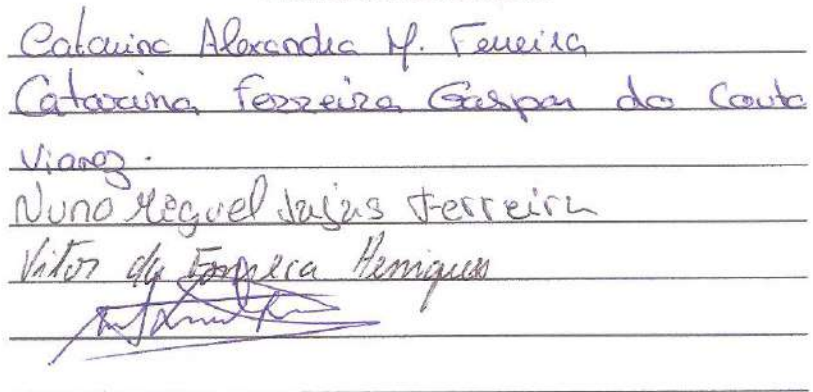 Catarina Alexandra M. Ferreira
Catarina Ferreira Gaspar do Couto
Nuno Miguel Ferreira
Vitor da Fonseca Henriques